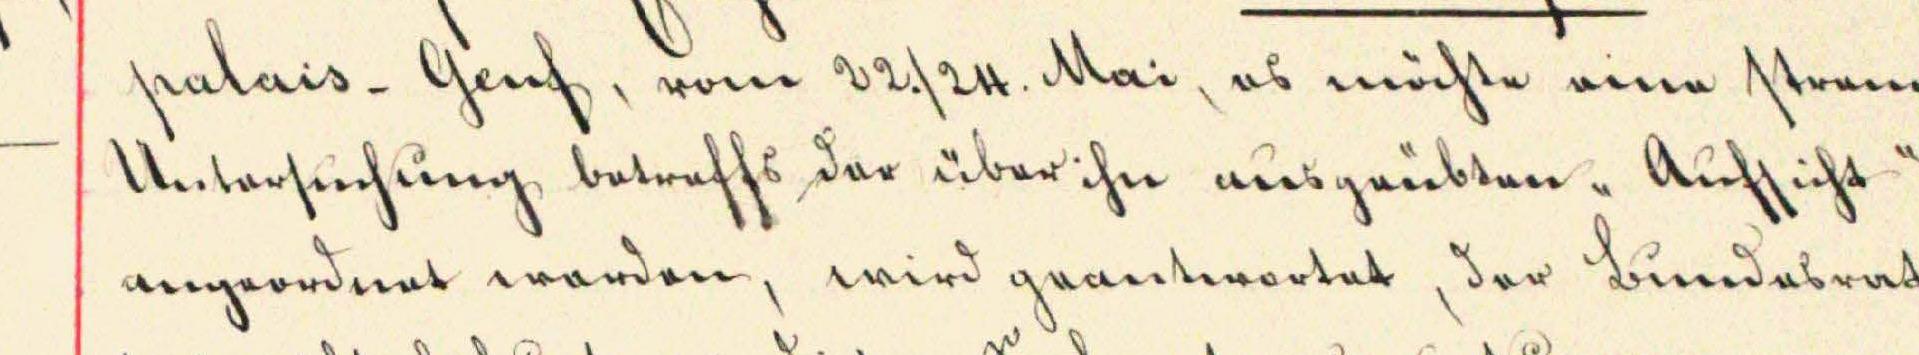 palais-Genf, vom 22./24. Mai, es möchte eine
Untersuchung betreffs der über ihn ausgeübten „Aufsicht“
angeordnet werden, wird geantwortet, der Bundesrat